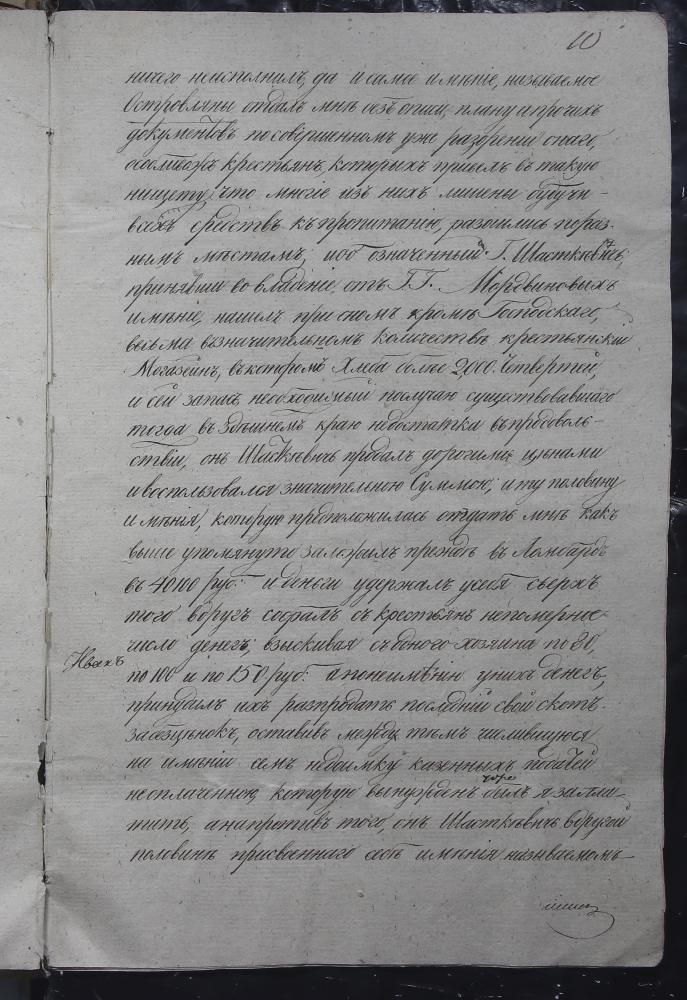 10
ничего неисполнилъ, да и самое имѣніе, называемое
Островляны отдалъ мнѣ безъ описи, плану и прочихъ
документовъ по совершенномъ уже разореніи онаго,
особливожъ крестьянъ, которыхъ привелъ въ такую
нищету, что многіе изъ нихъ лишены будучи
всѣхъ средствъ къ пропитанію, разошлись по раз-
нымъ мѣстамъ; ибо означенный Г. Шасткѣвичь,
принявши во владѣніе отъ Г.Г. Мордвиновыхъ
имѣніе, нашелъ при ономъ кромѣ Господскаго,
весьма въ значительномъ количествѣ крестьянскій
Магазейнъ, въ которомъ Хлеба более 2,000. Четвертей,
и сей запасъ необходимый по случаю существовавшаго
тогда въ здѣшнемъ краю недостатка въ продоволь-
ствіи, онъ Шасткѣвичь продалъ дорогими цѣнами
и воспользовался значительною Суммою; и ту половину
имѣнія, которую предположилась отдать мнѣ какъ
выше упомянуто заложилъ прежде въ Ломбардъ
въ 4000 руб: и деньги удержалъ у себя сверхъ
того вдругъ собралъ съ крестьянъ непомерное
число денегъ; взыскивая съ баного хозяина по 80,
по 100 и по 150 руб: а по неимѣнію у нихъ денегъ,
принудилъ ихъ разпродать последній свой скотъ
за безцѣнокъ, оставивъ между тѣмъ числившуюся
на имѣніи семъ недоимку казенныхъ податей
неоплаченною, которую вынужденъ былъ я запла-
тить, а напротивъ того, онъ Шасткѣвичь въ другой
половинѣ присвоеннаго себѣ имѣнія называемомъ